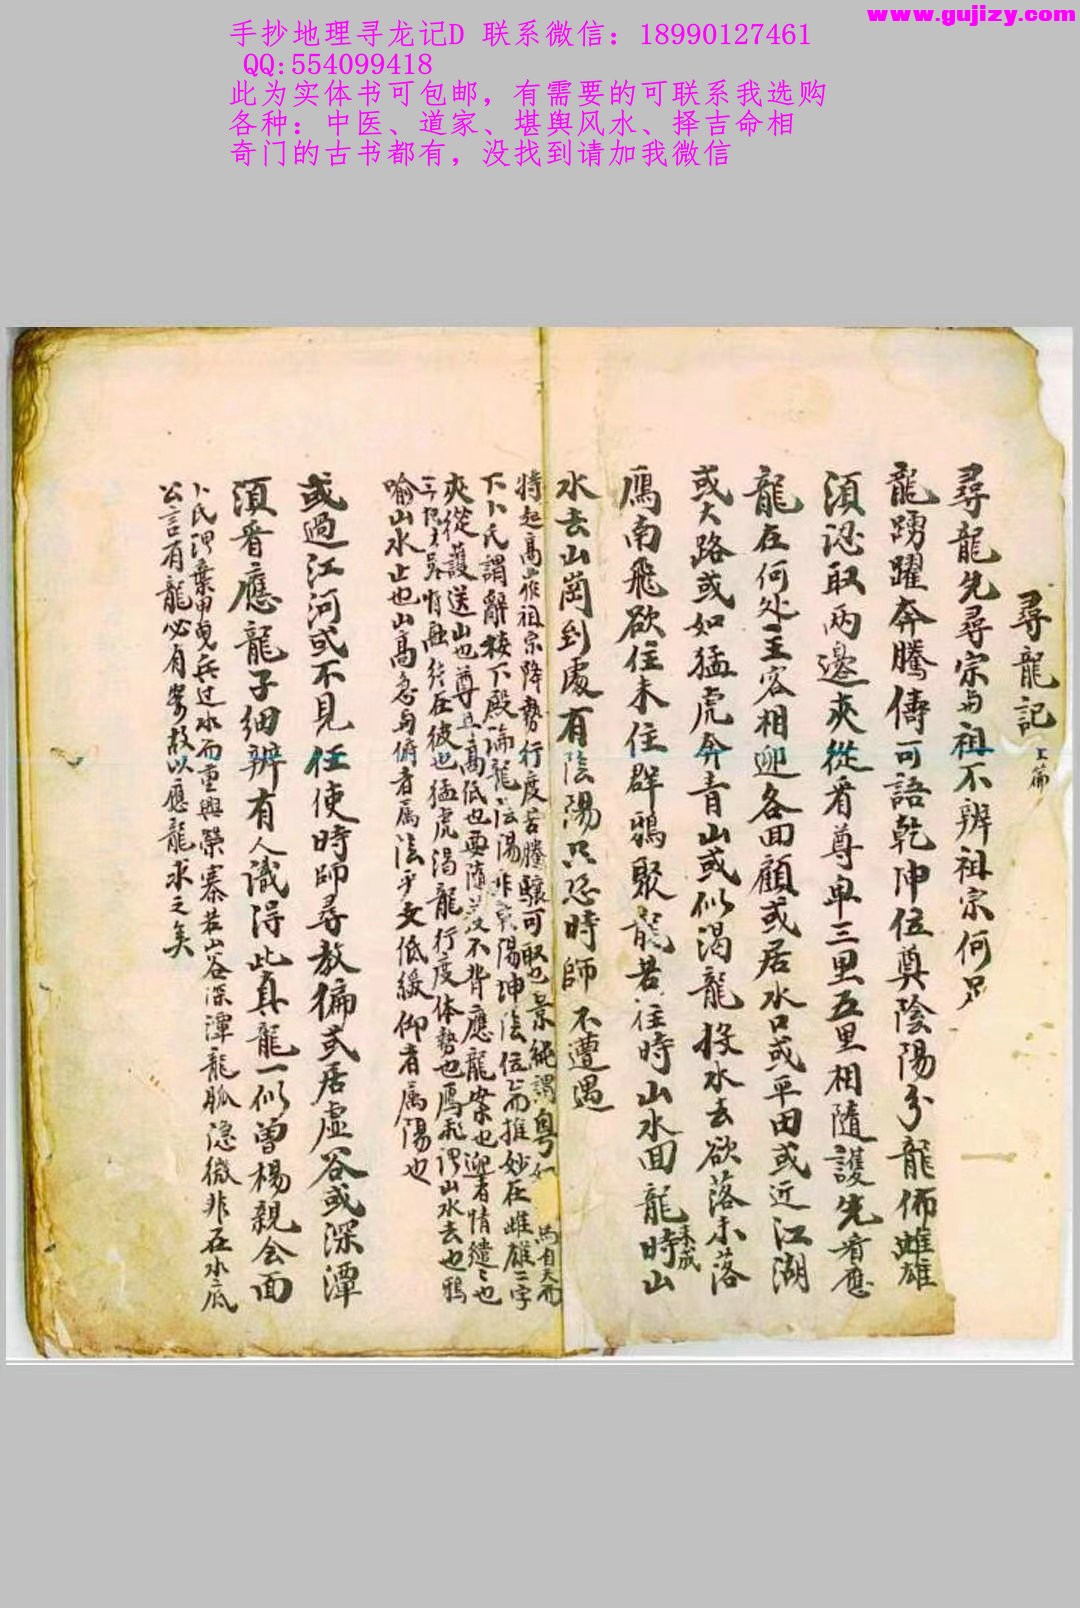 www.gujizy.com
手抄地理寻龙记D 联系微信：18990127461
QQ:554099418
此为实体书可包邮，有需要的可联系我选购
各种：中医、道家、堪舆风水、择吉命相
奇门的古书都有，没找到请加我微信
尋龍記 上篇
尋龍先尋宗与祖不辨祖宗何足
龍踴躍奔騰儔可語乾坤位奠陰陽分龍佈雌雄
須認取兩邊夾從看尊卑三里五里相隨護先看應
龍在何处主容相迎各回顧或居水口或平田或近江湖
或大路或如猛虎奔青山或似渴龍投水去欲落未落
鴈南飛欲住未住群鴉聚龍若往時山水回龍時山
未成
水去山崗到處有陰陽只恐時師不遭遇
特起高作祖宗降勢行度若騰驤可取也景純謂粵如
馬自天而
下卜氏謂辭楼下殿論龍陰陽非乾陽坤陰位而推妙在雌雄二字
夾從護送山也尊卑高低也要隨不背應龍案也迎者情繾也
在彼也猛虎渴龍行度体勢也鴈飛謂山水去也鴉
喻山水止也山高急与俯者属陰乎支低緩仰者属陽也
或過江河或不見任使時師尋教徧或居虛谷或深潭
須看應龍子細辨有人識得此真龍一似曾楊親会面
卜氏謂棄甲曳兵过水而重興營寨若山谷深潭龍脈隐微非在水底
公言有龍必有案故以應龍求之矣